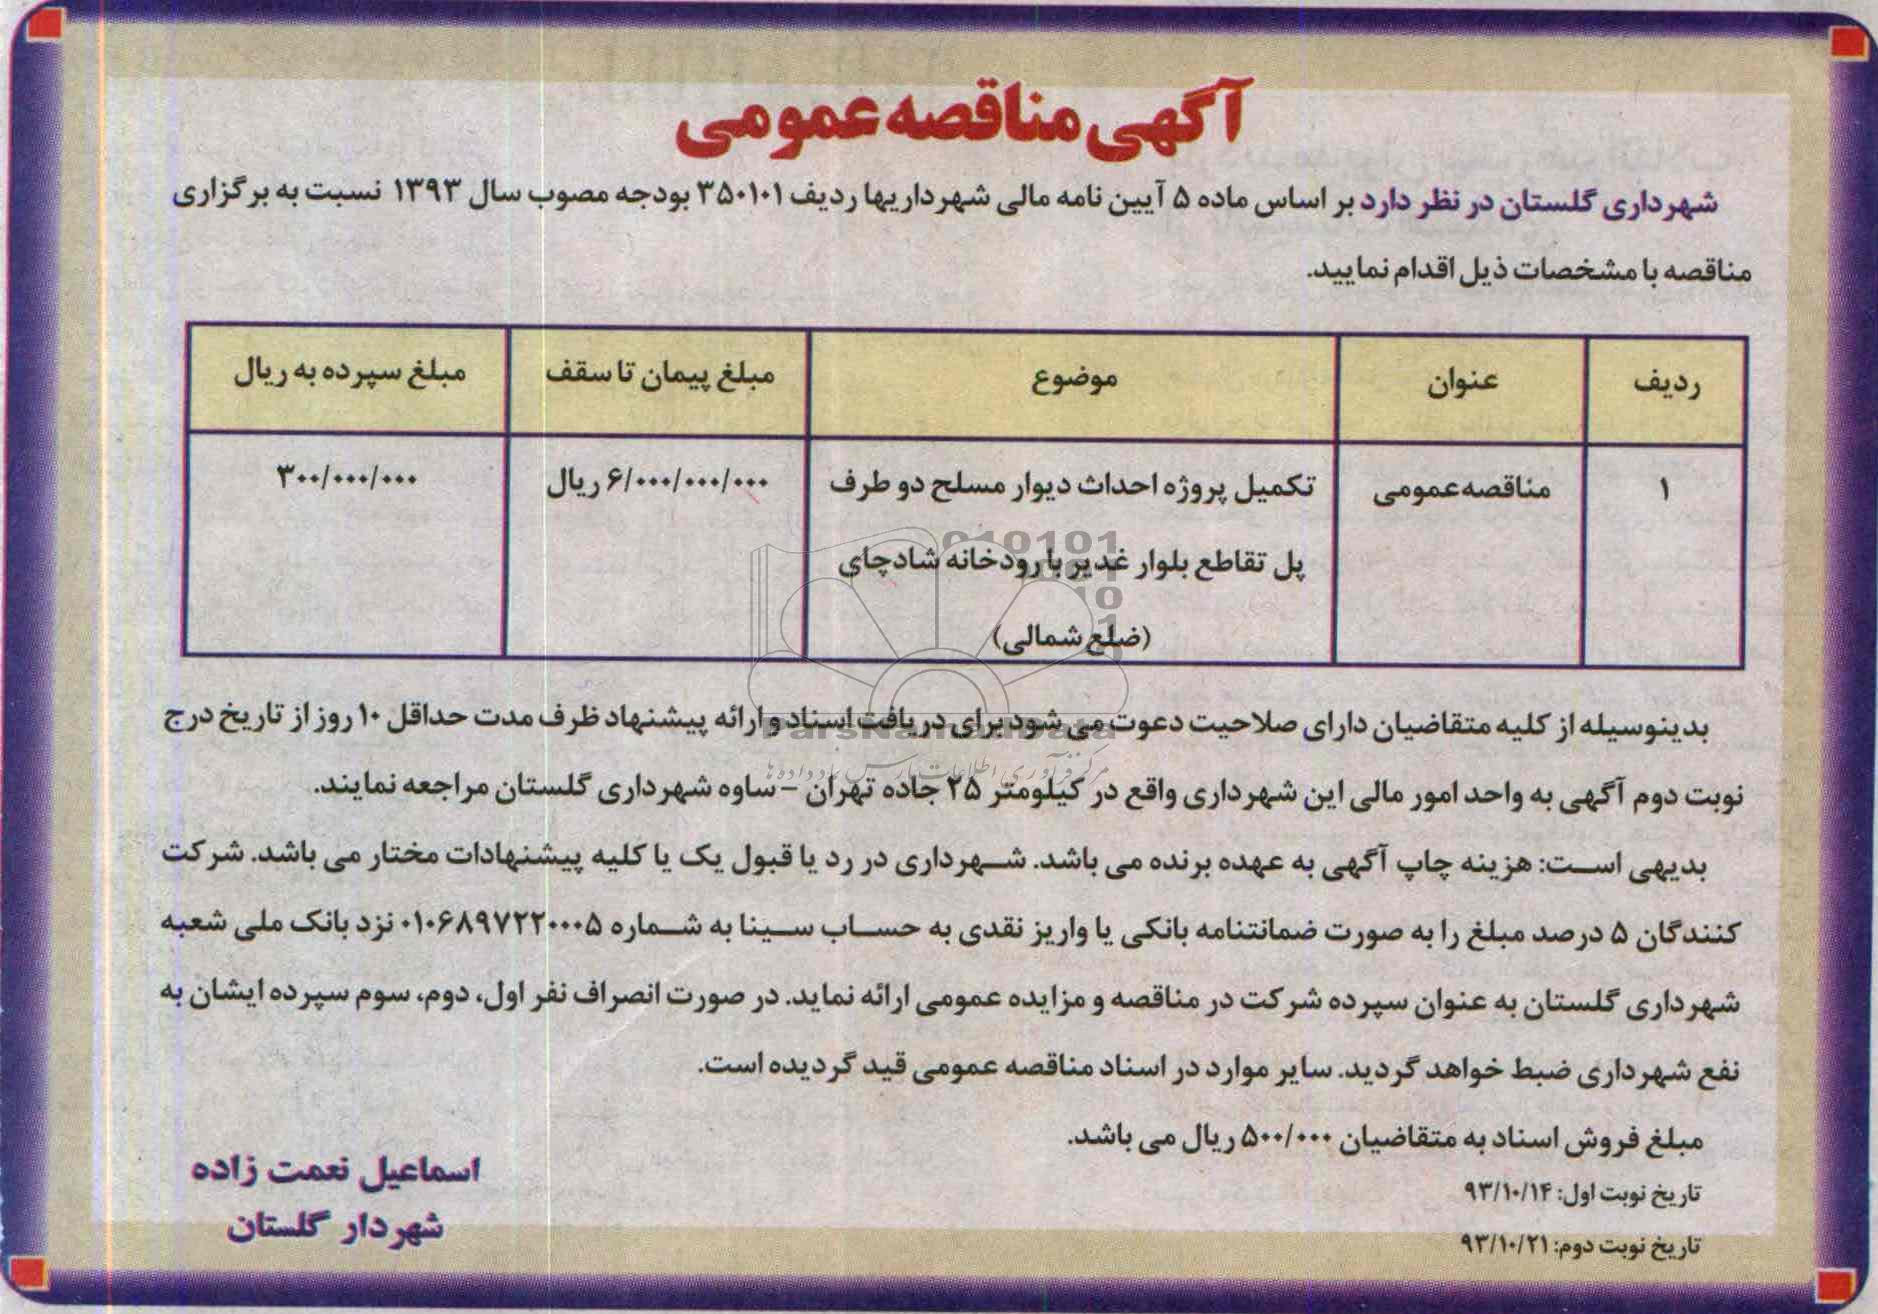 آگهی مناقصه عمومی
شهرداری گلستان در نظر دارد بر اساس ماده ۵ آیین نامه مالی شهرداریها ردیف ۳۵۰۱۰۱ بودجه مصوب سال ۱۳۹۳ نسبت به برگزاری
مناقصه با مشخصات ذیل اقدام نمایید.
ردیف عنوان موضوع مبلغ پیمان تا سقف مبلغ سپرده به ریال
۱ مناقصه عمومی تکمیل پروژه احداث دیوار مسلح دو طرف ۶/۰۰۰/۰۰۰/۰۰۰ ریال ۳۰۰/۰۰۰/۰۰۰
پل تقاطع بلوار غدیر با رودخانه شادچای
(ضلع شمالی)
بدینوسیله از کلیه متقاضیان دارای صلاحیت دعوت می شود برای دریافت اسناد و ارائه پیشنهاد ظرف مدت حداقل ۱۰ روز از تاریخ درج
نوبت دوم آگهی به واحد امور مالی این شهرداری واقع در کیلومتر ۲۵ جاده تهران – ساوه شهرداری گلستان مراجعه نمایند.
بدیهی است: هزینه چاپ آگهی به عهده برنده می باشد. شهرداری در رد یا قبول یک یا کلیه پیشنهادات مختار می باشد. شرکت
کنندگان ۵ درصد مبلغ را به صورت ضمانتنامه بانکی یا واریز نقدی به حساب سینا به شماره ۰۱۰۶۸۹۷۲۲۰۰۰۵ نزد بانک ملی شعبه
شهرداری گلستان به عنوان سپرده شرکت در مناقصه و مزایده عمومی ارائه نماید. در صورت انصراف نفر اول، دوم، سوم سپرده ایشان به
نفع شهرداری ضبط خواهد گردید. سایر موارد در اسناد مناقصه عمومی قید گردیده است.
مبلغ فروش اسناد به متقاضیان ۵۰۰/۰۰۰ ریال می باشد.
تاریخ نوبت اول: ۹۳/۱۰/۱۴
تاریخ نوبت دوم: ۹۳/۱۰/۲۱
اسماعیل نعمت زاده
شهردار گلستان